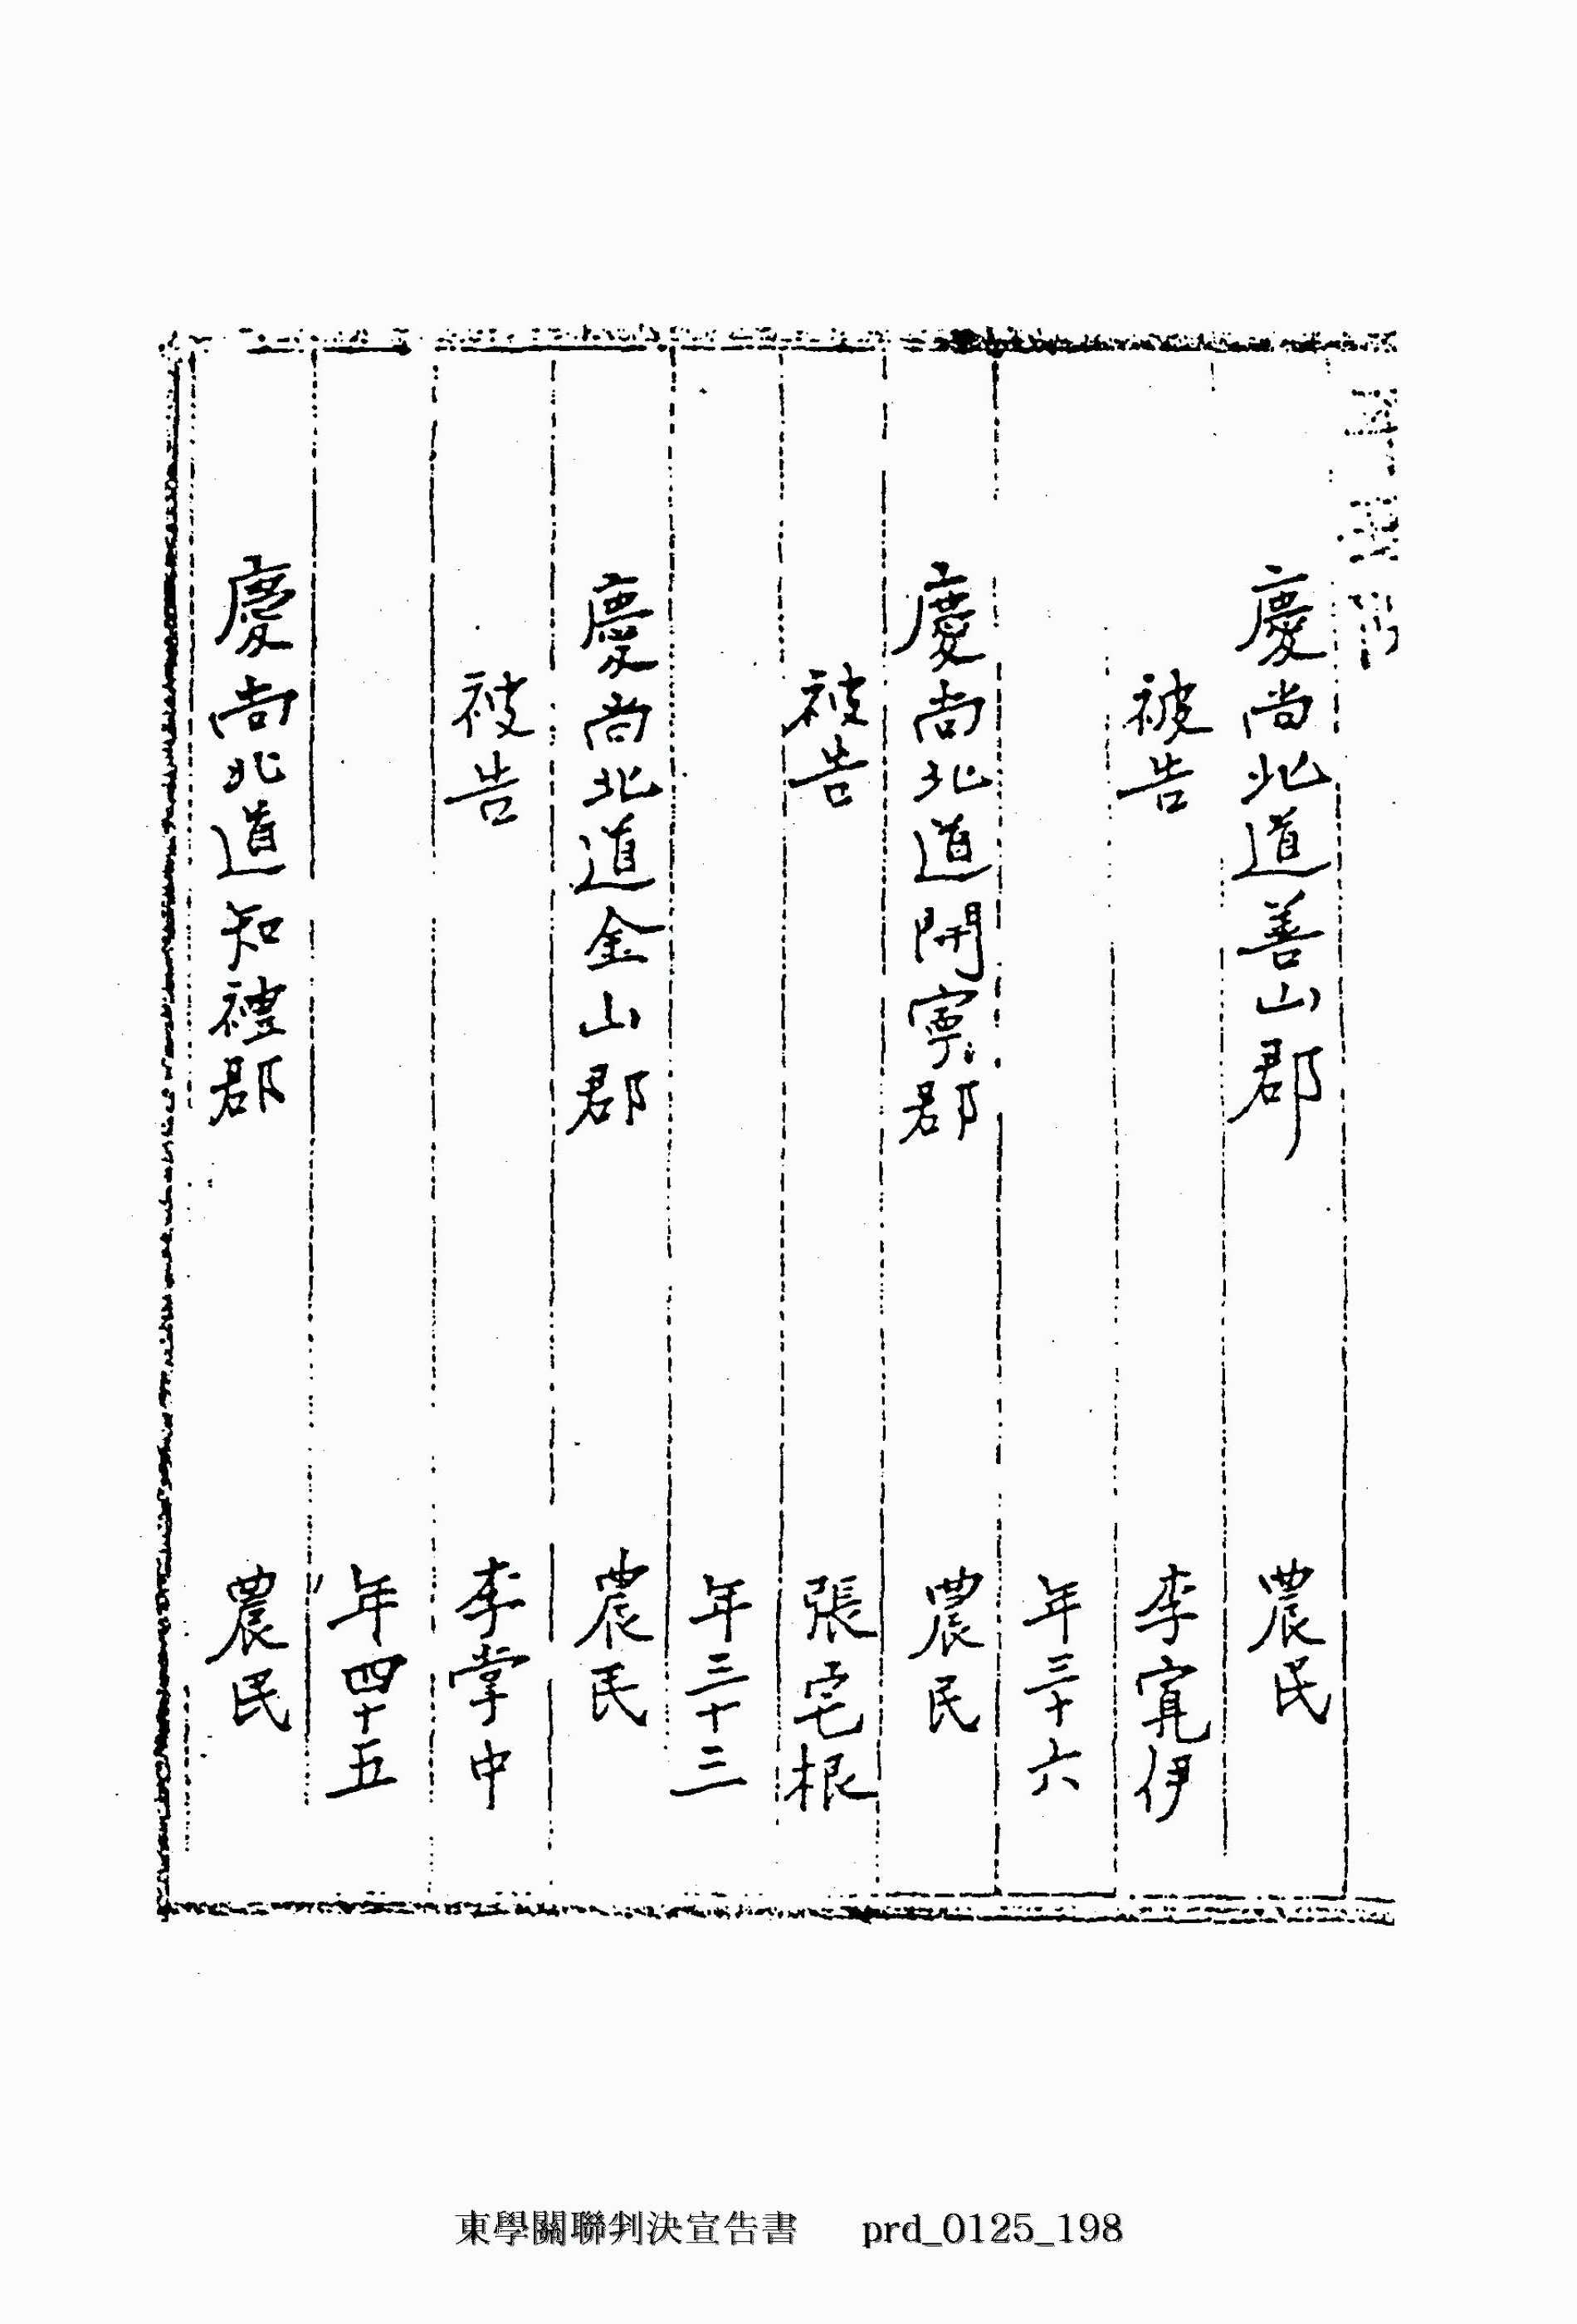 慶尙北道善山郡 農民
被告 李寬伊
年三十六
慶尙北道開寧郡 農民
被告 張宅根
年三十三
慶尙北道金山郡 農民
被告 李掌中
年四十五
慶尙北道知禮郡 農民
東學關聯判決宣告書 prd_0125_198